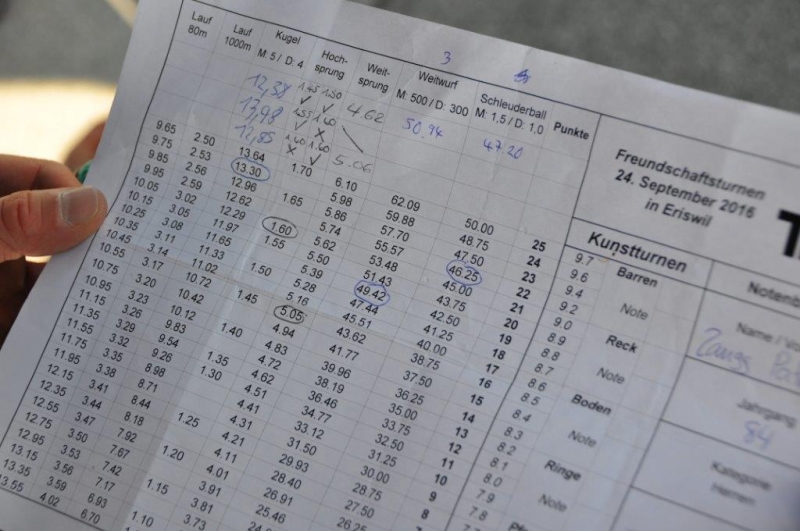 Lauf 80m
Lauf 1000m
Kugel M: 5 / D: 4
Hoch- sprung
Weit- sprung
Weitwurf M: 500 / D: 300
Schleuderball M: 1,5 / D: 1,0
Punkte
3
12,38 1.45 1.50 4.62 50.94 47.20
13,98 1.55 1.60
12,85 1.60 1.60 5.06
9.65 2.50 13.64 1.70 6.10 62.09 50.00 25
9.75 2.53 13.30 5.98 59.88 48.75 24
9.85 2.56 12.96 1.65 5.86 57.70 47.50 23
9.95 2.59 12.62 5.74 55.57 46.25 22
10.05 3.02 12.29 1.60 5.62 53.48 45.00 21
10.15 3.05 11.97 1.55 5.50 51.43 43.75 20
10.25 3.08 11.65 5.39 49.42 42.50 19
10.35 3.11 11.33 1.50 5.28 47.44 41.25 18
10.45 3.14 11.02 5.16 45.51 40.00 17
10.55 3.17 10.72 1.45 5.05 43.62 38.75 16
10.75 3.20 10.42 4.94 41.77 37.50 15
10.95 3.23 10.12 1.40 4.83 39.96 36.25 14
11.15 3.26 9.83 4.72 38.19 35.00 13
11.35 3.29 9.54 1.35 4.62 36.46 33.75 12
11.55 3.32 9.26 1.30 4.51 34.77 32.50 11
11.75 3.35 8.98 4.41 33.12 31.25 10
11.95 3.38 8.71 1.25 4.31 31.50 30.00 9
12.15 3.41 8.44 4.21 29.93 28.75 8
12.35 3.44 8.18 1.20 4.11 28.40 27.50
12.55 3.47 7.92 4.01 26.91 26.25
12.75 3.50 7.67 1.15 3.91 25.46
12.95 3.53 7.42 3.81
13.15 3.56 7.17 1.10 3.73
13.35 3.59 6.93
13.55 4.02 6.70
Freundschaftsturnen
24. September 2016
in Eriswil
Kunstturnen
9.7 Barren
9.6
9.4 Note
9.2
9.0 Reck
8.9
8.8 Note
8.7
8.6 Boden
8.5
8.4 Note
8.3
8.2 Ringe
8.1
8.0 Note
7.9
7.8
Notenb
Name / Vo
Zaugg
Jahrgang
84
Kategorie
Herren